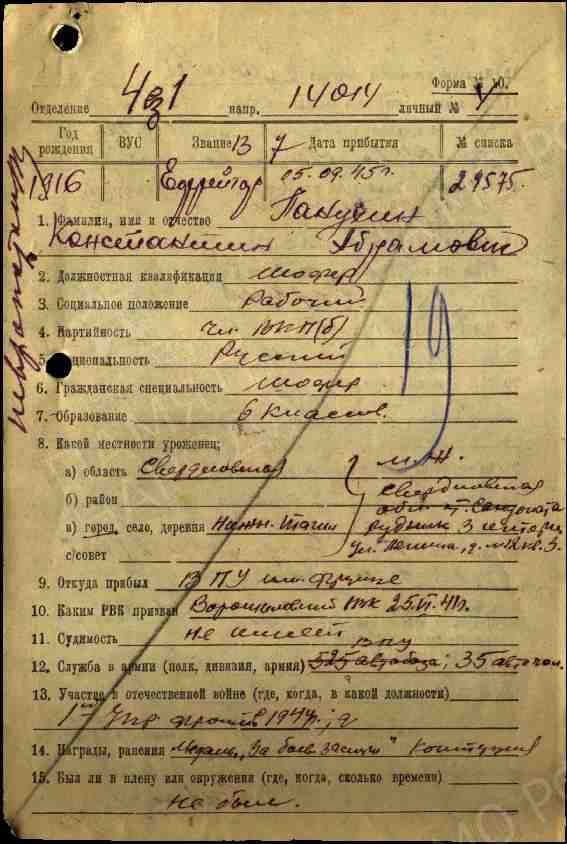 Форма № 10.
Отделение 4вз1 напр. 14014 личный №
Год рождения ВУС Звание Дата прибытия № списка
13 7
1916 Ефрейтор 05.09.45г. 29575.
1. Фамилия, имя и отчество
Константин Абрамович
2. Должностная квалификация шофер
3. Социальное положение Рабочий
4. Партийность чл. ВКП(б)
5. Национальность Русский
6. Гражданская специальность шофер
7. Образование 6 классов.
19
8. Какой местности уроженец;
а) область Свердловская
Свердловская
б) район
в) город, село, деревня Нижн. Тагил
рудник 3
с/совет
ул. Ленина, д.
9. Откуда прибыл ВПУ им. Фрунзе
10. Каким РВК призван Ворошиловский РВК 25.VI.41г.
11. Судимость не имеет
ВПУ
12. Служба в армии (полк, дивизия, армия) 525 автобаза; 35
13. Участие в отечественной войне (где, когда, в какой должности)
1й Укр фронт 1944г.;
14. Награды, ранения Медаль „За боев заслуги" Контузия
15. Был ли в плену или окружении (где, когда, сколько времени)
не был.